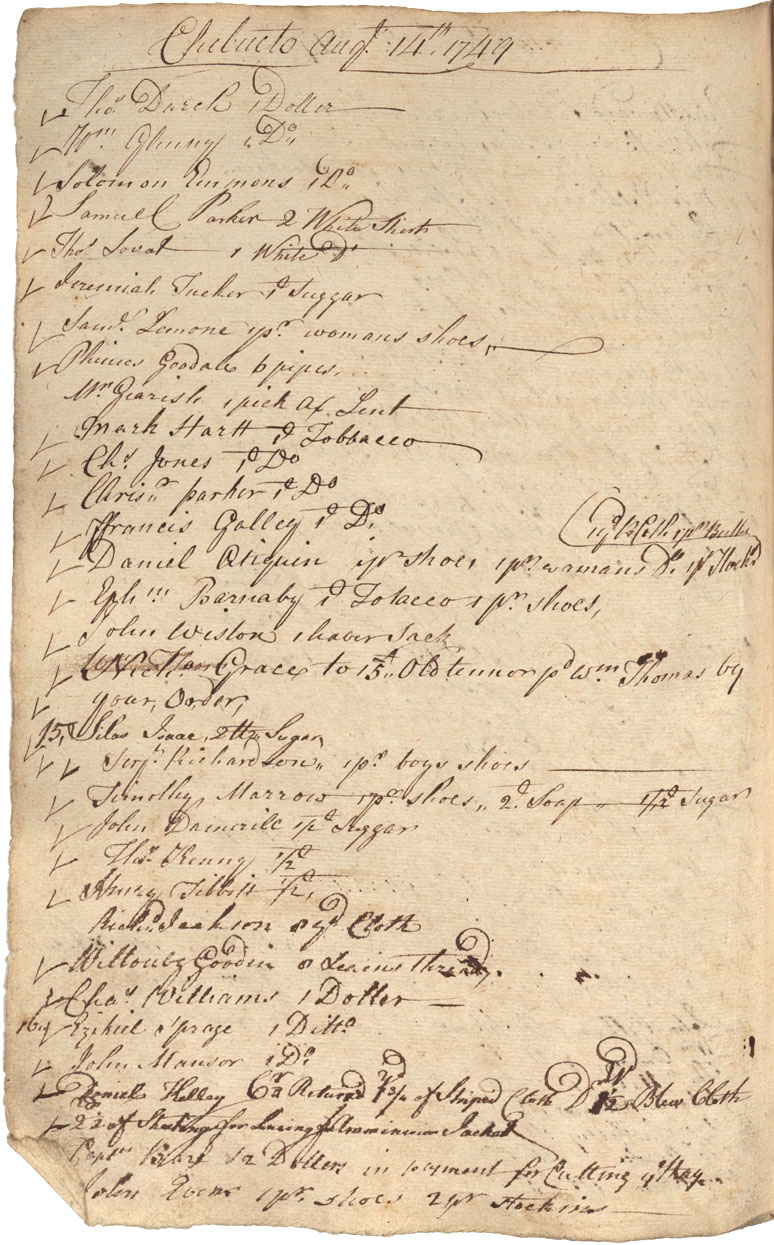 Chebucto Augt. 14th. 1749
Thos. Darck 1 Doller
Wm. Glenny 1 Do.
Solomon Emmons 1 Do.
Samuel Parker 2 White Shirts
Thos. Lovat 1 White Do
Jeremiah Tucker 1d Suggar
Saml. Lemone 1 pr. womans shoes,,
Phinies Goodale 6 pipes.
Mr. Gearish 1 pick ax Lent
Mark Hartt 1d Tobbacco
Chs. Jones 1d Do
Chrisr. parker 1d Do
ffrancis Galley 1d Do.
Daniel 1 pr shoes 1 pr. womans Do.
Ephm. Barnaby 1d Tobacco 1 pr. shoes,
John Wiston 1 haver Sack
Grace to 15 Old tennor pd Wm. Thomas by
your, Order,
15, Silas Isaac, 2 Sugar
Serjt. Richardson,, 1 pr. boys shoes
Timothy Marrow 1 pr. shoes,, 2d. Soap,, 1/2d Sugar
John 1/2d Suggar
Thos. Kenny 1/2d
Henry Tibbitt 1/2d,
Richd. Jackson 8 yd Cloth
Willouby Goodin 8 thread.
Chas. Williams 1 Doller
16 Ezikiel Sprage 1 Ditto
John Mansor 1 Do
Daniel Holley Cr Return'd 1 3/4 of Striped Cloth Dr 1 1/2 Blew Cloth
2 1/2 of for Jacket
Captn. 12 Dollers in payment for Cutting ye Hay.
John Evens 1 pr. shoes 2 pr stockins